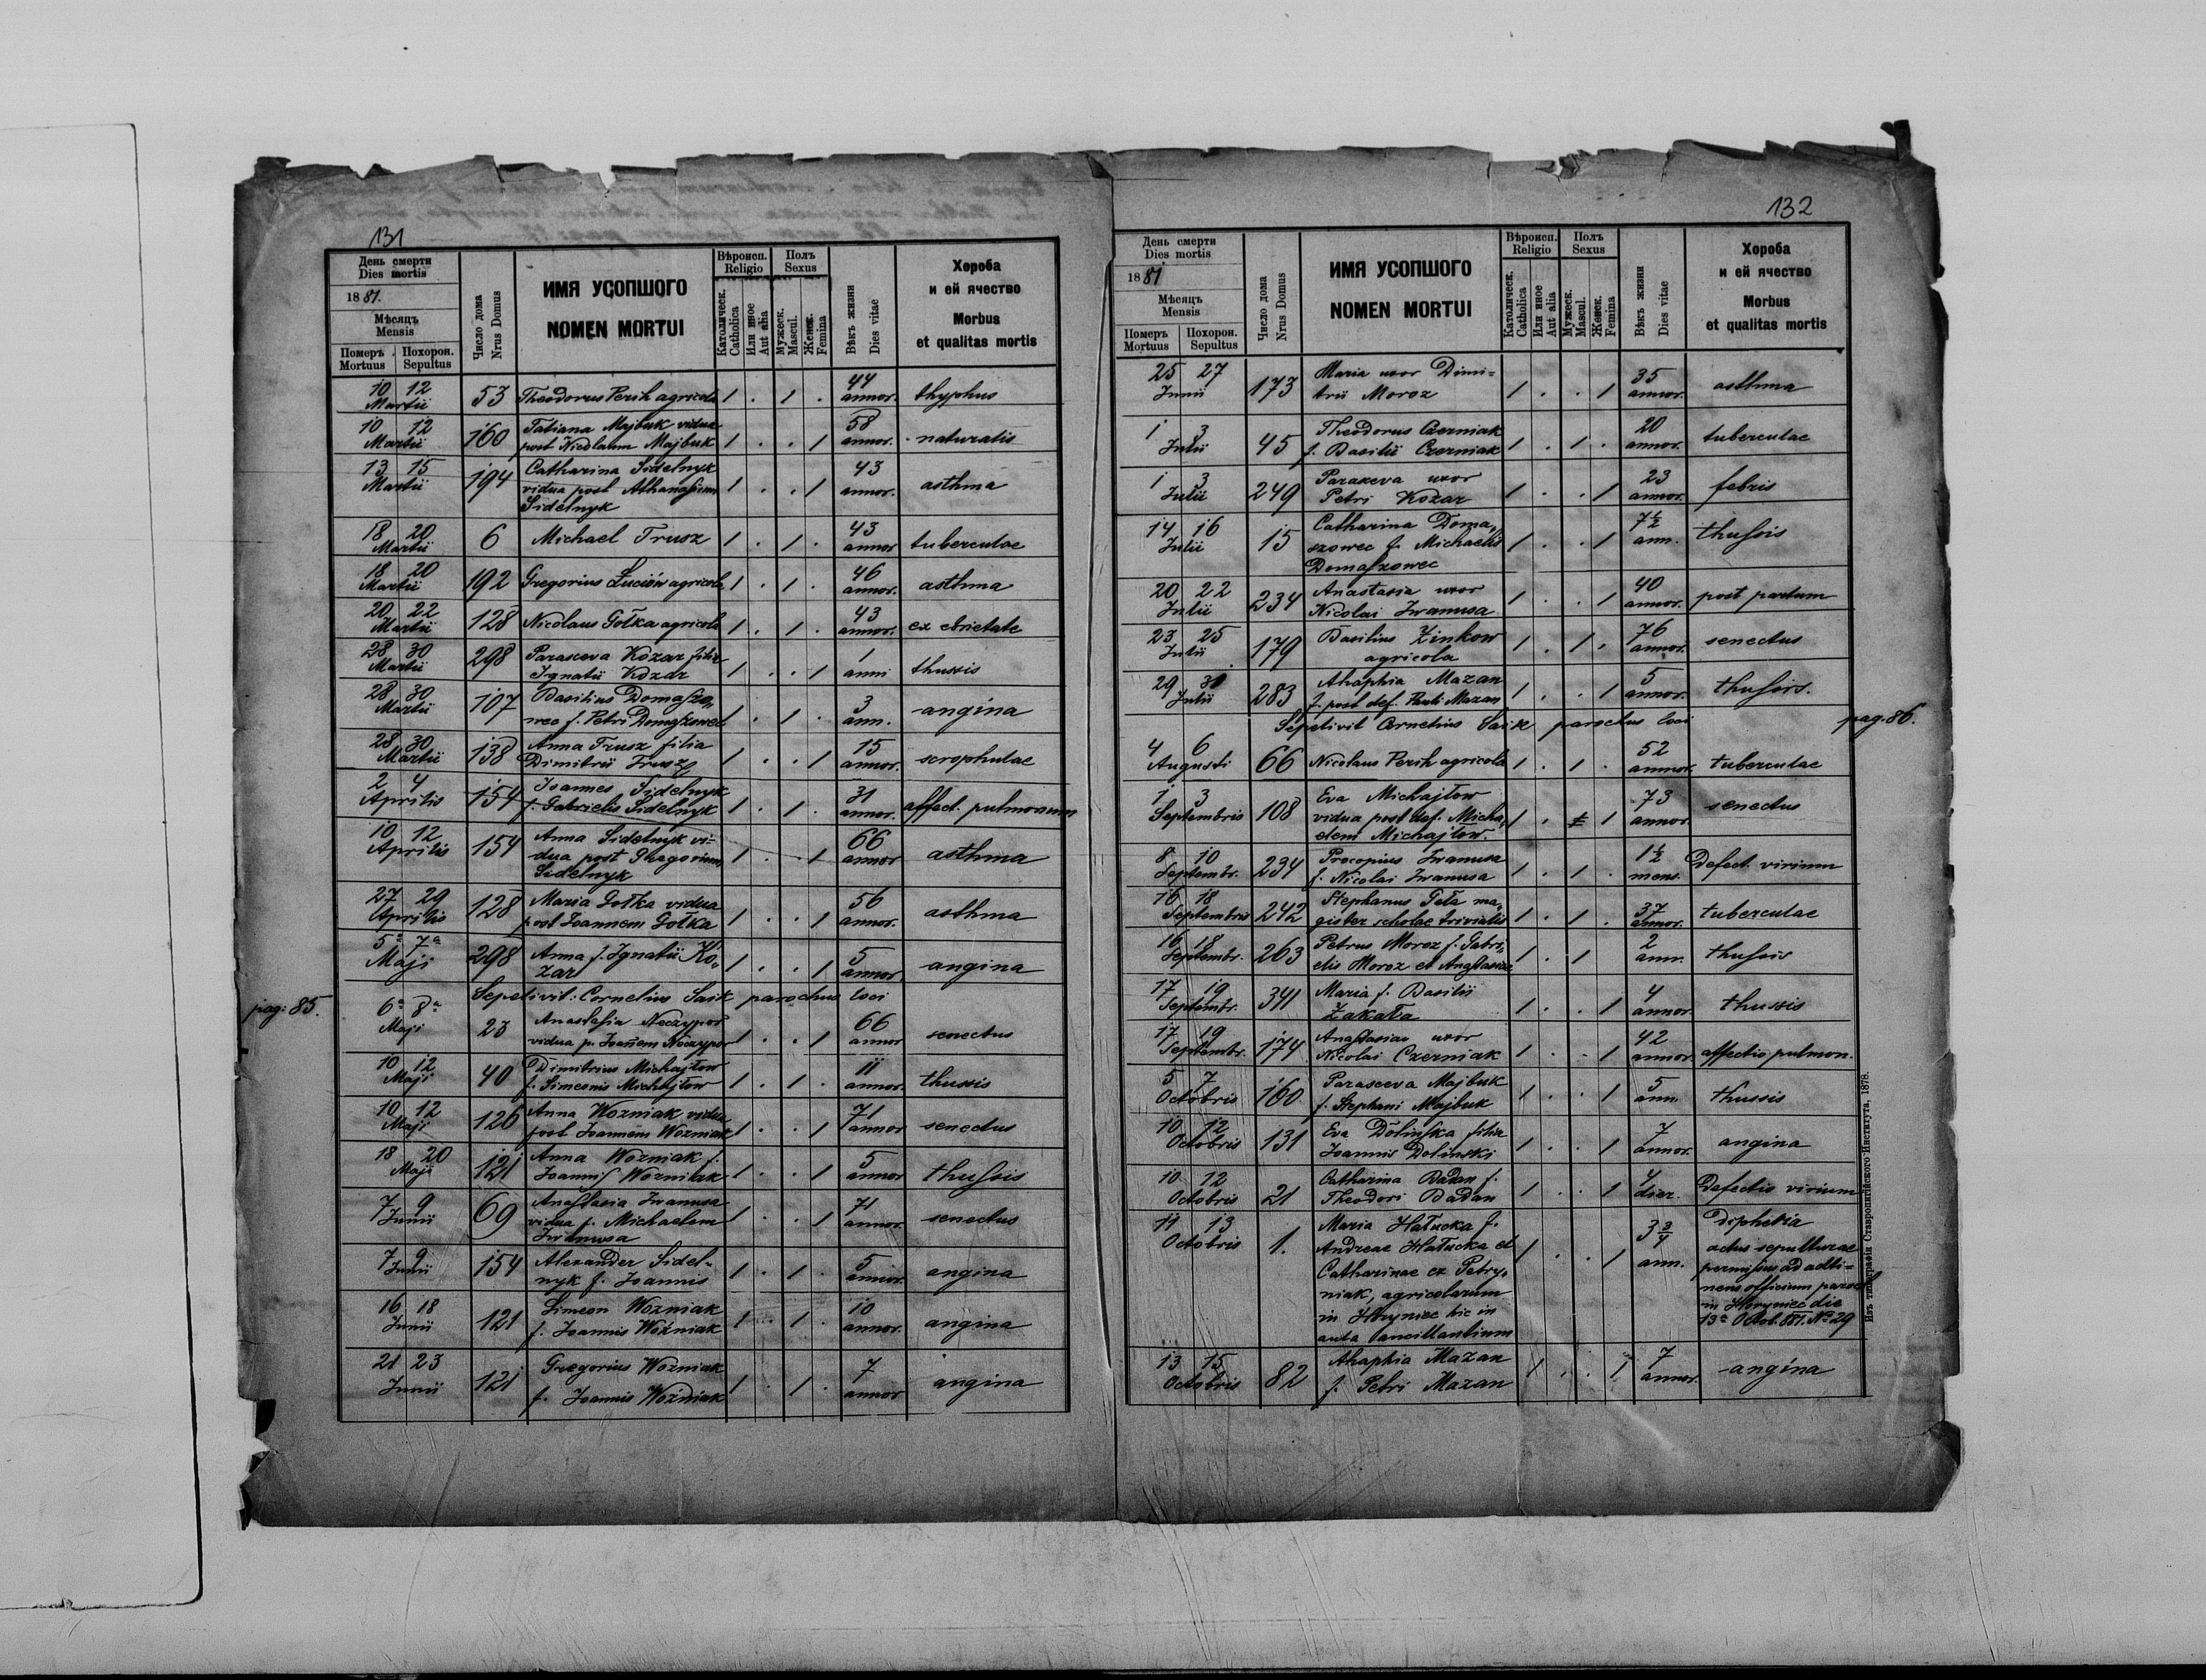 131
День смерти
Dies mortis
1881.
Мѣсяцъ
Mensis
Померъ Mortuus Похорон. Sepultus
Число дома
Nrus Domus
ИМЯ УСОПШОГО
NOMEN MORTUI
Вѣроисп.
Religio
Католическ.
Catholica
Или иное
Aut alia
Полъ
Sexus
Мужеск.
Mascul.
Женск.
Femina
Вѣкъ жизни
Dies vitae
Хороба
и ей ячество
Morbus
et qualitas mortis
10 12 Martii 53 Theodorus Perih agricola 1 . 1 . 44 annor. thyphus
10 12 Martii 160 Tatiana Majbuk vidua
post Nicolaum Majbuk 1 . . 1 58 annor. naturalis
13 15 Martii 194 Catharina Sidelnyk
vidua post Athanasium
Sidelnyk 1 . . 1 43 annor. asthma
18 20 Martii 6 Michael Trusz 1 . 1 . 43 annor tuberculae
18 20 Martii 192 Gregorius Łuciów agricola 1 . 1 . 46 annor. asthma
20 22 Martii 128 Nicolaus Gołka agricola 1 . 1 . 43 annor. ex ebrietate
28 30 Martii 298 Parasceva Kozar filia
Ignatii Kozar 1 . . 1 1 anni thussis
28 30 Martii 107 Basilius Domaszo„
wec f. Petri Domaszowec 1 . 1 . 3 ann. angina
28 30 Martii 138 Anna Trusz filia
Dimitrii Trusz 1 . . 1 15 annor. scrophulae
2 4 Aprilis 154 Joannes Sidelnyk
f. Gabrielis Sidelnyk 1 . 1 . 31 annor. affect. pulmonum
10 12 Aprilis 154 Anna Sidelnyk vi=
dua post Gregorium
Sidelnyk 1 . . 1 66 annor asthma
27 29 Aprilis 128 Maria Gołka vidua
post Joannem Gołka 1 . . 1 56 annor. asthma
5ª 7ª Maji 298 Anna f. Ignatii Ko„
zar 1 . . 1 5 annor. angina
Sepelivit: Cornelius Saik parochus loci
pag: 85.
6ª 8ª Maji 23 Anastasia Neczypor
vidua p. Joanem Neczypor 1 . . 1 66 annor senectus
10 12 Maji 40 Dimitrius Michajłow
f. Simeonis Michajłow 1 . 1 . 11 annor. thussis
10 12 Maji 126 Anna Wozniak vidua
post Joannem Wozniak 1 . . 1 71 annor senectus
18 20 Maji 121 Anna Wozniak f.
Joannis Wozniak 1 . . 1 5 annor thussis
7 9 Junii 69 Anastasia Iwanusa
vidua p. Michaelem
Iwanusa 1 . . 1 71 annor. senectus
7 9 Junii 154 Alexander Sidel-
nyk f. Joannis 1 . 1 . 5 annor. angina
16 18 Junii 121 Simeon Wozniak
f. Joannis Woźniak 1 . 1 . 10 annor. angina
21 23 Junii 121 Gregorius Wozniak
f. Joannis Woźniak 1 . 1 . 7 annor angina
132
День смерти
Dies mortis
1881
Мѣсяцъ
Mensis
Померъ Mortuus Похорон. Sepultus
Число дома
Nrus Domus
ИМЯ УСОПШОГО
NOMEN MORTUI
Вѣроисп.
Religio
Католическ.
Catholica
Или иное
Aut alia
Полъ
Sexus
Мужеск.
Mascul.
Женск.
Femina
Вѣкъ жизни
Dies vitae
Хороба
и ей ячество
Morbus
et qualitas mortis
25 27 Junii 173 Maria uxor Dimi=
trii Moroz 1 . . 1 35 annor. asthma
1 3 Julii 45 Theodorus Czerniak
f. Basilii Czerniak 1 . 1 . 20 annor. tuberculae
1 3 Julii 249 Paraxeva uxor
Petri Kozar 1 . . 1 23 annor. febris
14 16 Julii 15 Catharina Doma„
szowec f. Michaelis
Domaszowec 1 . . 1 7½ ann. thussis
20 22 Julii 234 Anastasia uxor
Nicolai Iwanusa 1 . . 1 40 annor. post partum
23 25 Julii 179 Basilius Zinkow
agricola 1 . 1 . 76 annor. senectus
29 30 Julii 283 Ahaphia Mazan
f. post def. Pauli Mazan 1 . . 1 5 annor. thussis.
Sepelivit Cornelius Saik parochus loci
pag. 86.
4 6 Augusti 66 Nicolaus Perih agricola 1 . 1 . 52 annor. tuberculae
1 3 Septembris 108 Eva Michajłow
vidua post def. Micha„
elem Michajłow. 1 . 1 73 annor senectus
8 10 Septembr. 234 Procopius Iwanusa
f. Nicolai Iwanusa 1 . 1 . 1½ mens. Defect. virium
16 18 Septembris 242 Stephanus Geła ma„
gister scholae trivialis 1 . 1 . 37 annor. tuberculae
16 18 Septembr. 263 Petrus Moroz f. Gabri„
elis Moroz et Anastasiae 1 . 1 2 ann. thussis
17 19 Septembr. 341 Maria f. Basilii
Zakała 1 . . 1 4 annor thussis
17 19 Septembr. 174 Anastasia uxor
Nicolai Czerniak 1 . . 1 42 annor. affectio pulmon.
5 7 Octobris 160 Parasceva Majbuk
f. Stephani Majbuk 1 . . 1 5 ann. thussis
10 12 Octobris 131 Eva Dolinska filia
Joannis Dolinski 1 . . 1 7 annor. angina
10 12 Octobris 21 Catharina Badan f.
Theodori Badan 1 . . 1 4 dier. Defectis virium
11 13 Octobris 1. Maria Hałucka f.
Andreae Hałucka et
Catharinae ex Petry„
niak, agricolarum
in Horyniec hic in
aula ancillantium 1 . . 1 3¾ ann. Diphetia
actus sepulturae
permissus ad adti=
nens officium paroch
in Horyniec die
13ª Octob. 881. № 29
13 15 Octobris 82 Ahaphia Mazan
f. Petri Mazan 1 . . 1 7 annor. angina
Изъ типографіи Ставропигійского Института, 1878.